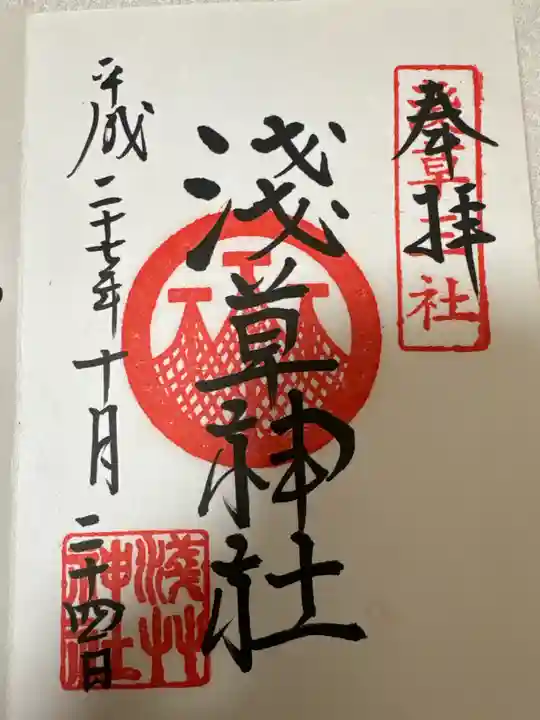 奉拝
淺草神社
平成二十七年十月二十四日
淺草神社